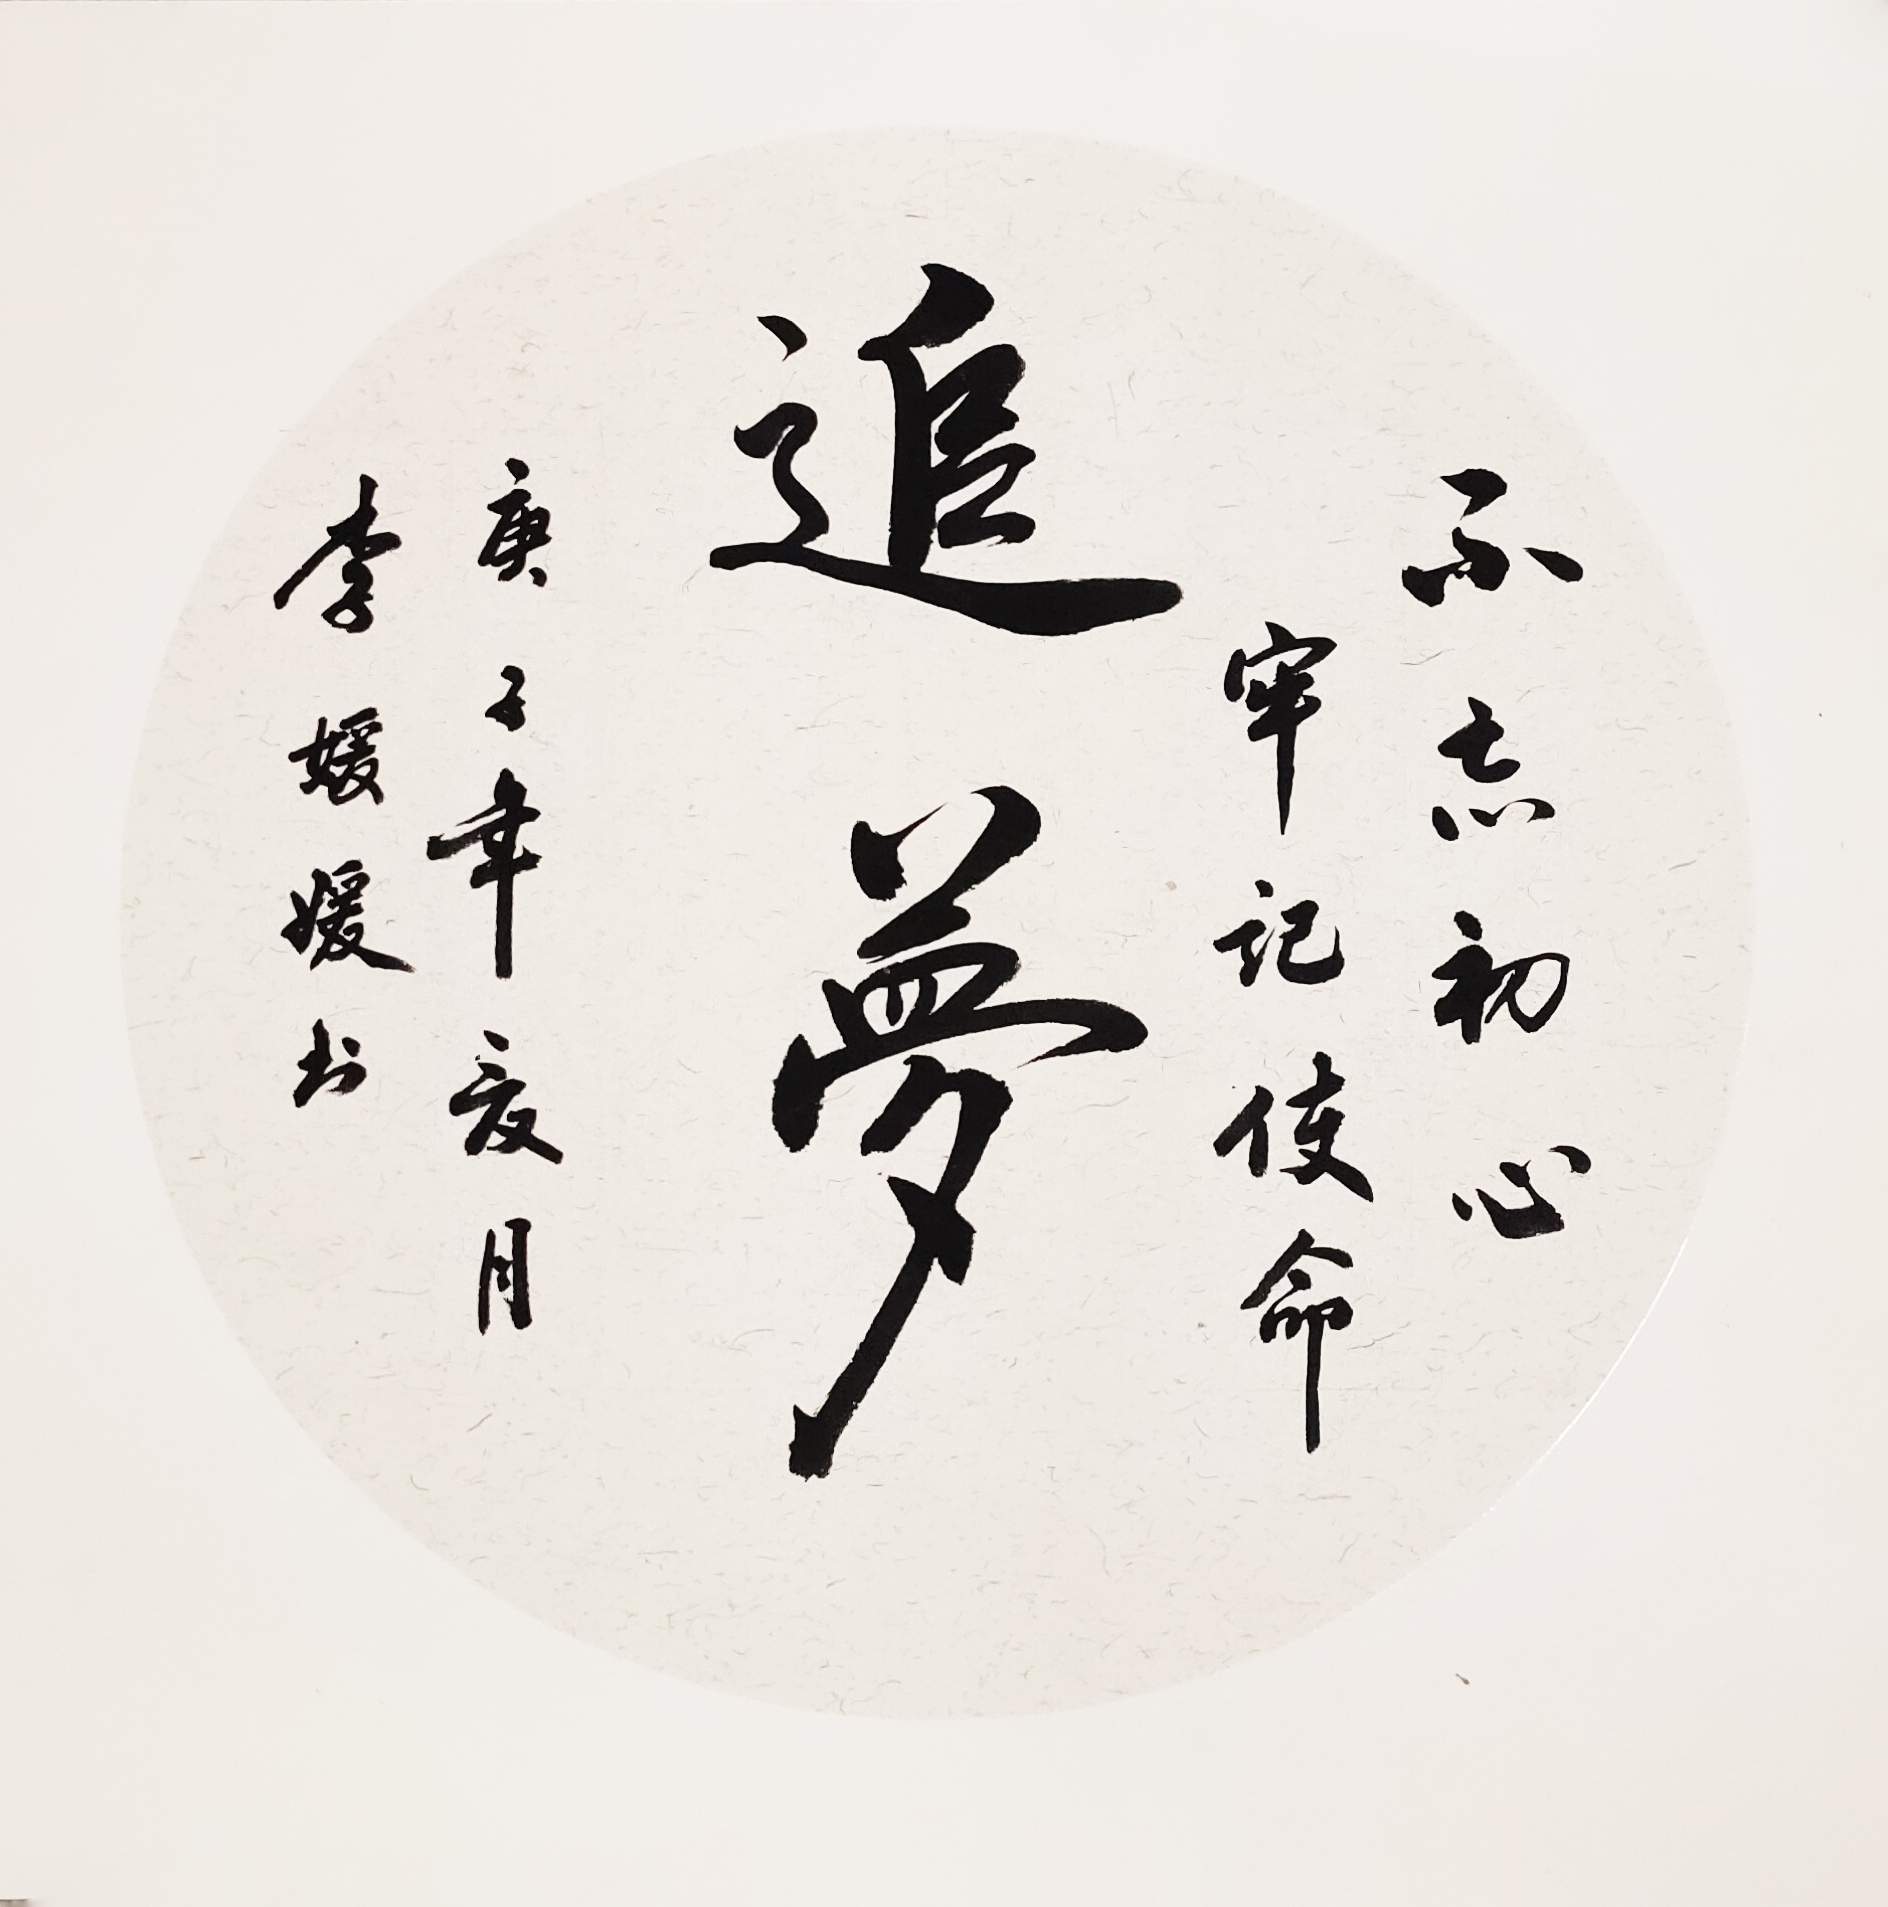 不忘初心
牢记使命
追夢
庚子年夏月
李媛媛书